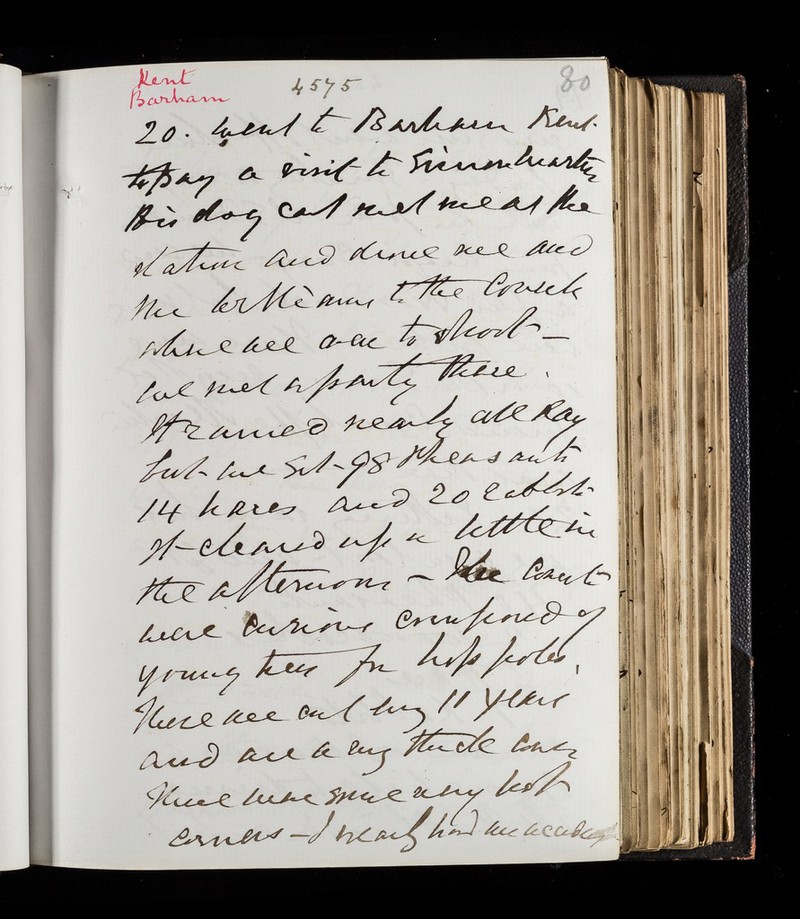 Kent
Barham
4575
80
20. Went to Barham Kent
to pay a visit to Simon
His dog cart met me at the
station and drove me and
me to the Covert
where we are to shoot –
we met a party there.
It rained nearly all day
but we got 98 Pheasants
14 hares and 20 rabbits
It cleared up a little in
the afternoon – The Coverts
were curious composed of
young trees for hop poles,
These are cut every 11 years
and are a very thick cover
There were some very hot
corners – I nearly had